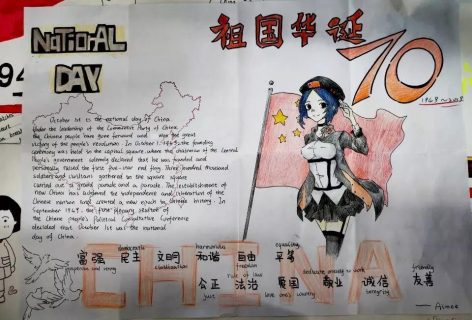 National
Day
祖国华诞
70
October 1st is the national day of China.
Under the leadership of the Communist Party of China,
the Chinese people have three forward and the great
victory of the people's revolution. In October 1, 1949, the founding
ceremony was held in the capital square, where the chairman of the Central
People's government solemnly declared that he was founded and
personally raised the first five-star red flag. Three hundred thousand
soldiers and civilians gathered in the square
carried out a grand parade and a parade. The establishment of
new China has the independence and liberation of the
Chinese nation and created a new epoch in Chinese history. In
September 1949, the first plenary of
the Chinese people's Political Consultative Conference
decided that October 1st was the national
day of China.
CHINA
democratic harmonious equality
富强 民主 文明 和谐 自由 平等
prosperous and strong civilization freedom
rule of law dedicate to work friendly
公正 法治 爱国 敬业 诚信 友善
just love one's country integrity
— Aimee
94